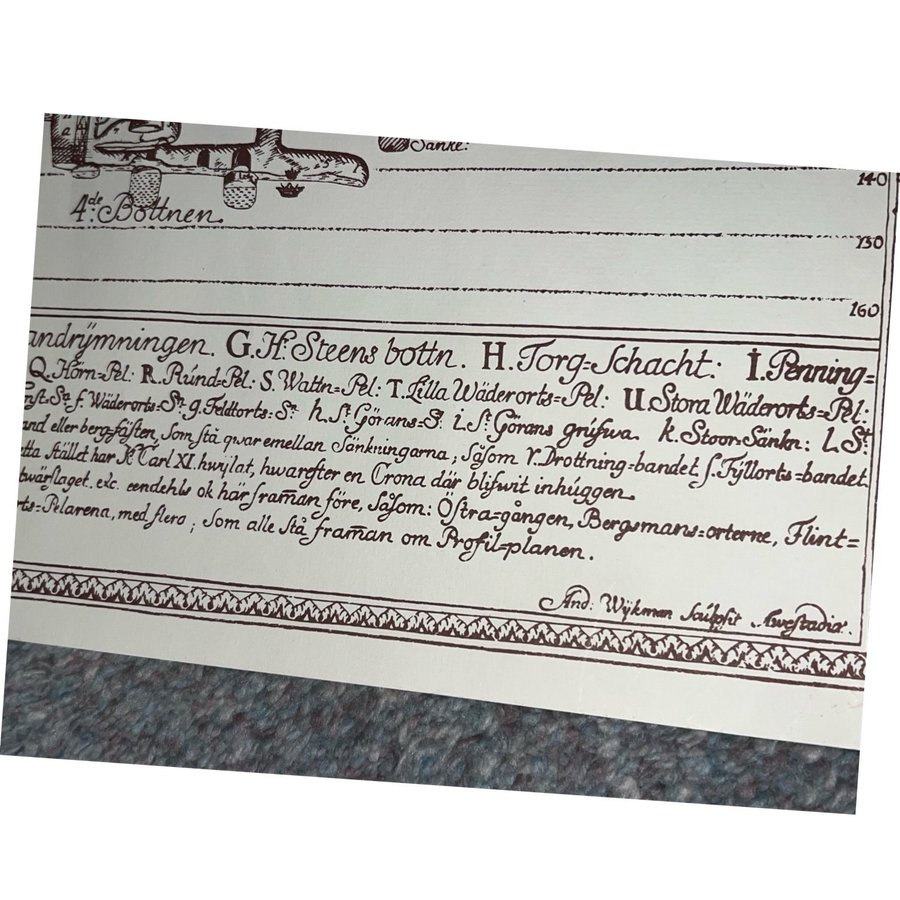 Sänke:
140
4de: Bottnen.
130
160
andrÿmningen. G. H: Steens bottn. H. Torg=Schacht: I. Penning=
Q. Hörn=Pel: R. Rúnd=Pel: S. Wattn=Pel: T. Lilla Wäderorts=Pel: U. Stora Wäderorts=Pel:
f. Wäderorts=Sn g. Feldtorts=Sn h. St. Görans=S: i. St. Görans grúfwa. k. Stoor=Sänkn: l. St:
and eller berg=fästen, Som stå qwar emellan Sänkningarna; såsom r. Drottning=bandet s. Fyllorts=bandet
Stället har K. Carl XI. hwÿlat, hwarefter en Crona där blifwit inhúggen.
twärslaget. etc. eendehls ok här framan före, Såsom: Östra=gången, Bergsmans=orterne, Flint=
rts=Pelarena, med flero; Som alle Stå framan om Profil=planen.
And: Wÿkman Sculpsit Awestadiæ.